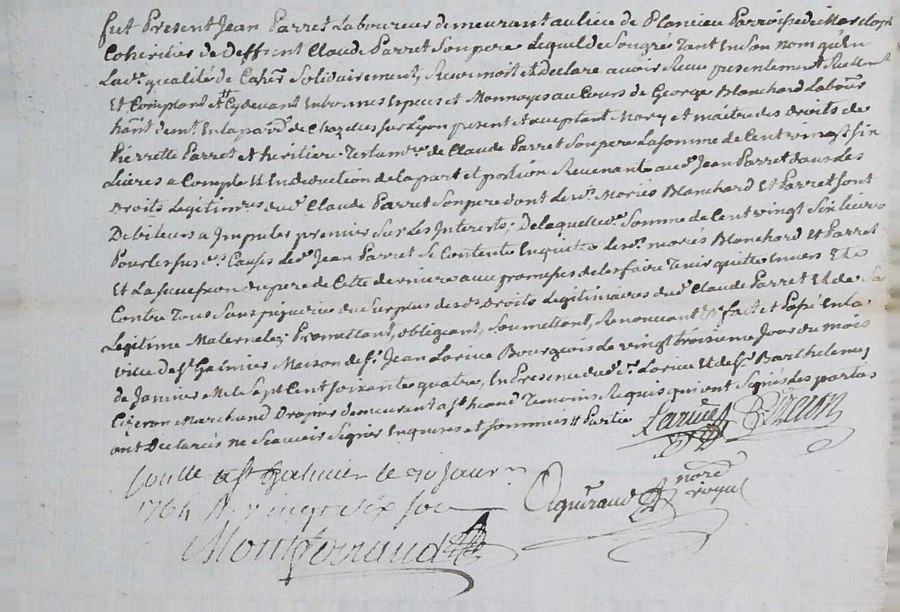 fut Present Jean Parret Laboureur demeurant au lieu de Plancieu Parroisse de Marclop
Coheritier de Deffunt Claude Parret Son pere Lequel de Son gré Tant En Son nom qu'En
La de. qualité de Coher. Solidairement, Reconnoit et declare avoir Recu presentement Reellemt
Et Comptant et Cydevant En bonnes Especes et Monnoyes au Cours de George Blanchard Labour
hant demt. En la parr. de Chazelles sur Lyon present et acceptant Mary et maitre des Droits de
Pierrette Parret et heritiere Testamre. de Claude Parret Son pere La Somme de Cent vingt six
Livres a Compte Et En deduction de la part et portion Revenante aud. Jean Parret dans Les
Droits Legitimres dud. Claude Parret Son pere dont Lesd. Mariés Blanchard Et Parret Sont
Debiteurs a Imputer premier Sur Les Interets; De laquelle de. Somme de Cent vingt Six livres
Pour les susd. Causes Led. Jean Parret Se Contente En quitte Lesd. mariés Blanchard et Parret
Et La succession du pere de Cette derniere avec promesses de les faire Tenir quitte Envers Et
Contre Tous Sans prejudice du Surplus desd. Droits Legitimaires dud. Claude Parret Et de Sa
Legitime Maternele; Promettant, obligeant, Soumettant, Renoncant &c. fait et Passé En la
ville de St Galmier Maison de Sr. Jean Larive Bourgeois Le vingt troisieme Jour du mois
de Janvier Mil Sept Cent Soixante quatre, En Presence dud. Sr. Larive Et de Sr. Barthelemy
Cizeron Marchand Drapier demeurant a St heand Temoins Requis qui ont Signés Les parties
ont Declarés ne Scavoir Signer Enquises et Sommées Partie
Larive Cizeron
Conllé a St Galmier le 30 janvr
1764 R. vingt six sou
Montferrand
nore. royal